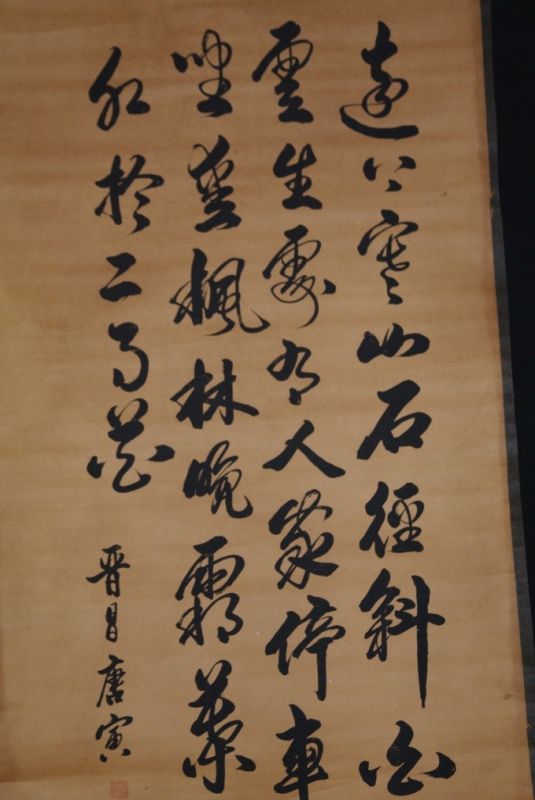 遠上寒山石徑斜白
雲生處有人家停車
坐愛楓林晚霜葉
紅於二月花
晋昌唐寅